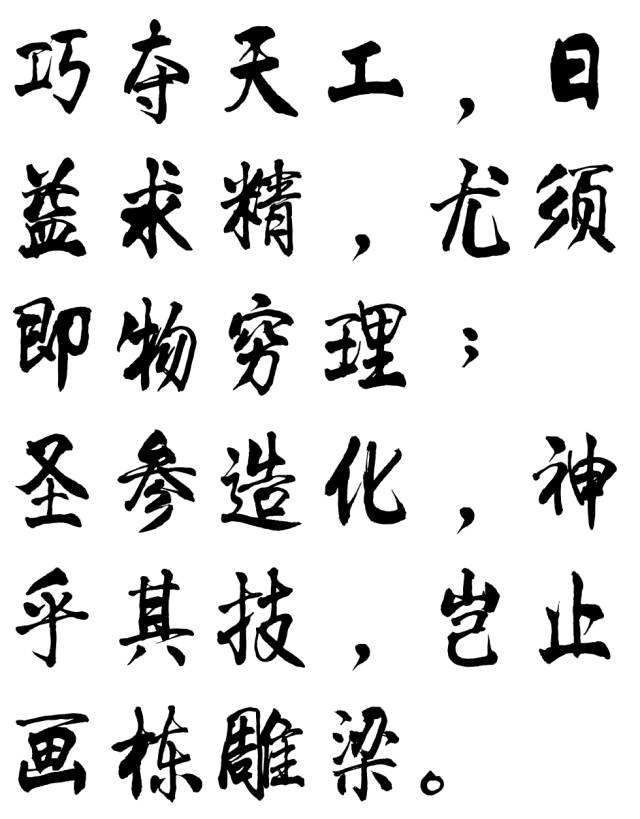 巧夺天工，日
益求精，尤须
即物穷理；
圣参造化，神
乎其技，岂止
画栋雕梁。